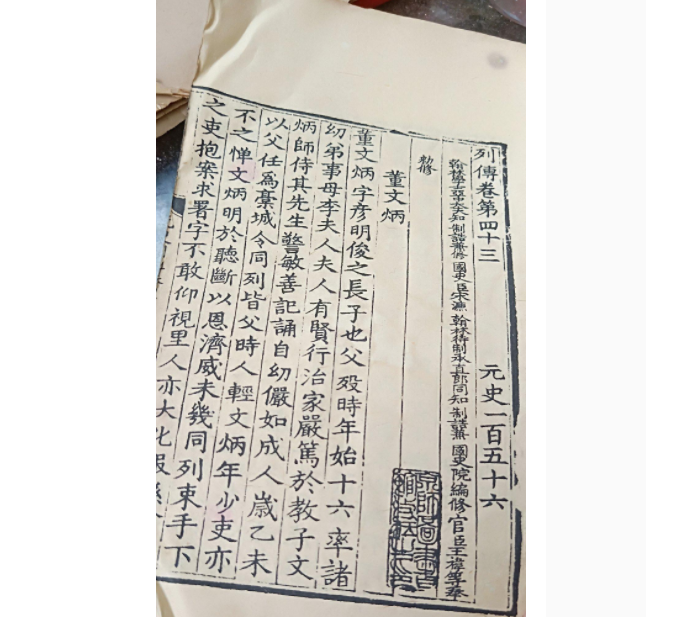 列傳卷第四十三 元史一百五十六
翰林學士亞中大夫知制誥兼修國史臣宋濂 翰林待制承直郎同知制誥兼國史院編修官臣王禕等奉
勑修
董文炳
董文炳字彦明俊之長子也父殁時年始十六率諸
幼弟事母李夫人夫人有賢行治家嚴篤於教子文
炳師侍其先生警敏善記誦自幼儼如成人歲乙未
以父任爲藁城令同列皆父時人輕文炳年少吏亦
不之憚文炳明於聽斷以恩濟威未幾同列束手下
之吏抱案求署字不敢仰視里人亦大化
京師圖書